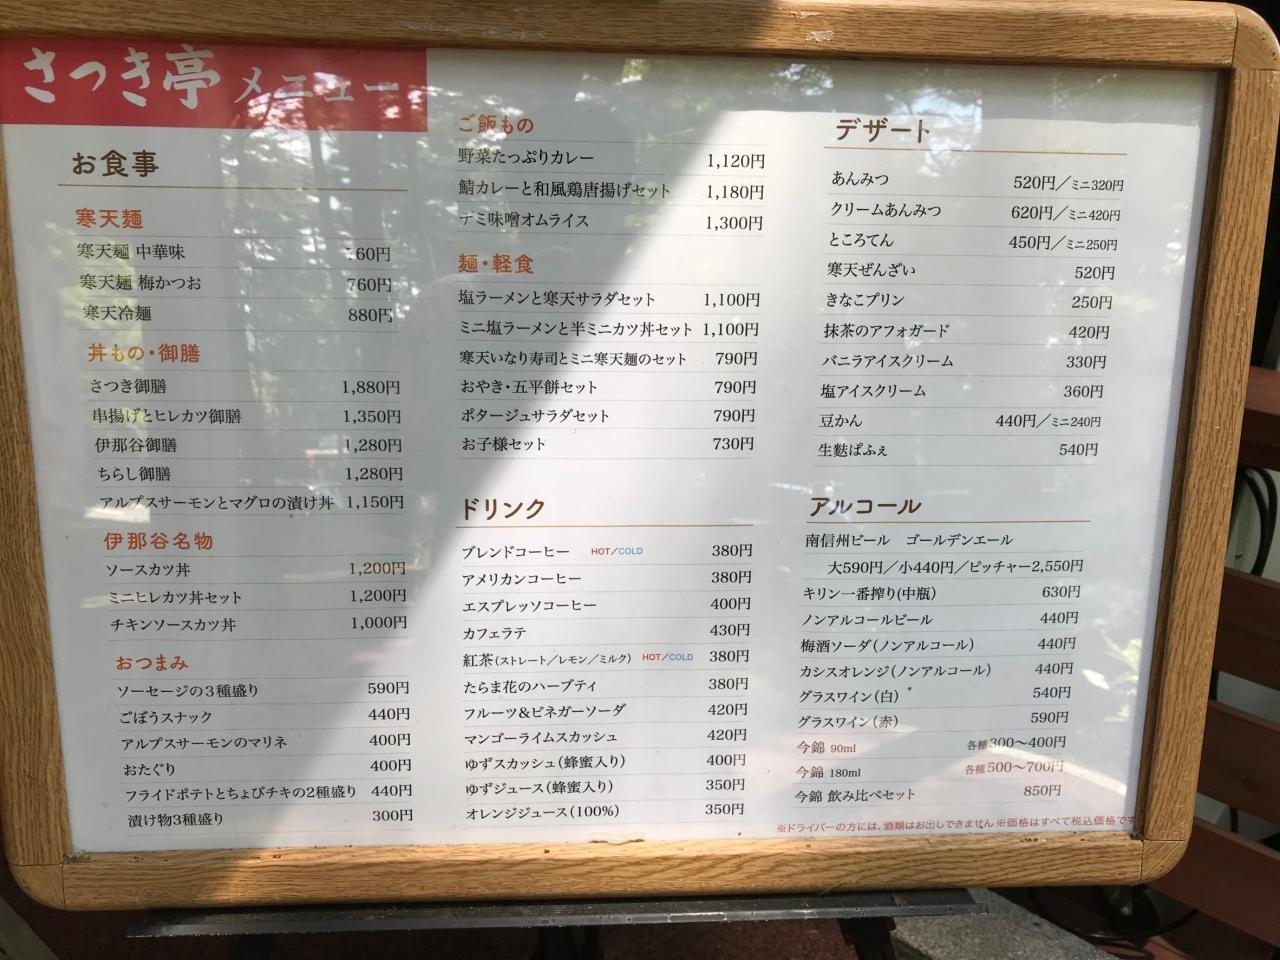 さつき亭 メニュー
お食事
寒天麺
寒天麺 中華味 760円
寒天麺 梅かつお 760円
寒天冷麺 880円
丼もの・御膳
さつき御膳 1,880円
串揚げとヒレカツ御膳 1,350円
伊那谷御膳 1,280円
ちらし御膳 1,280円
アルプスサーモンとマグロの漬け丼 1,150円
伊那谷名物
ソースカツ丼 1,200円
ミニヒレカツ丼セット 1,200円
チキンソースカツ丼 1,000円
おつまみ
ソーセージの3種盛り 590円
ごぼうスナック 440円
アルプスサーモンのマリネ 400円
おたぐり 400円
フライドポテトとちょびチキの2種盛り 440円
漬け物3種盛り 300円
ご飯もの
野菜たっぷりカレー 1,120円
鯖カレーと和風鶏唐揚げセット 1,180円
デミ味噌オムライス 1,300円
麺・軽食
塩ラーメンと寒天サラダセット 1,100円
ミニ塩ラーメンと半ミニカツ丼セット 1,100円
寒天いなり寿司とミニ寒天麺のセット 790円
おやき・五平餅セット 790円
ポタージュサラダセット 790円
お子様セット 730円
ドリンク
ブレンドコーヒー HOT/COLD 380円
アメリカンコーヒー 380円
エスプレッソコーヒー 400円
カフェラテ 430円
紅茶(ストレート/レモン/ミルク) HOT/COLD 380円
たらま花のハーブティ 380円
フルーツ&ビネガーソーダ 420円
マンゴーライムスカッシュ 420円
ゆずスカッシュ(蜂蜜入り) 400円
ゆずジュース(蜂蜜入り) 350円
オレンジジュース(100%) 350円
デザート
あんみつ 520円/ミニ320円
クリームあんみつ 620円/ミニ420円
ところてん 450円/ミニ250円
寒天ぜんざい 520円
きなこプリン 250円
抹茶のアフォガード 420円
バニラアイスクリーム 330円
塩アイスクリーム 360円
豆かん 440円/ミニ240円
生麩ぱふぇ 540円
アルコール
南信州ビール ゴールデンエール
大590円/小440円/ピッチャー2,550円
キリン一番搾り(中瓶) 630円
ノンアルコールビール 440円
梅酒ソーダ(ノンアルコール) 440円
カシスオレンジ(ノンアルコール) 440円
グラスワイン(白) 540円
グラスワイン(赤) 590円
今錦 90ml 各種300〜400円
今錦 180ml 各種500〜700円
今錦 飲み比べセット 850円
※ドライバーの方には、酒類はお出しできません ※価格はすべて税込価格です